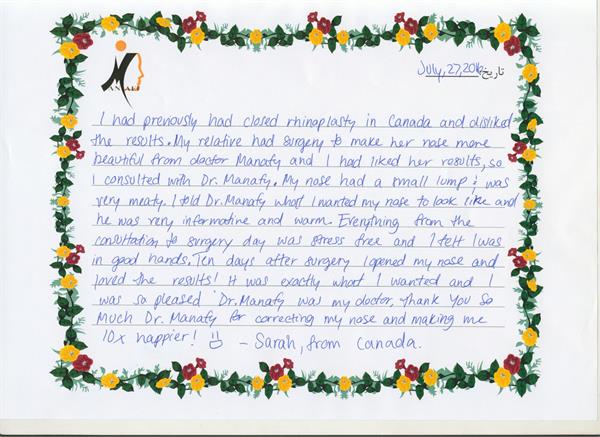 MANAFI
July, 27, 2016 تاریخ
I had previously had closed rhinoplasty in Canada and disliked
the results. My relative had surgery to make her nose more
beautiful from doctor Manafy and I had liked her results, so
I consulted with Dr. Manafy. My nose had a small lump & was
very meaty. I told Dr. Manafy what I wanted my nose to look like and
he was very informative and warm. Everything from the
consultation to surgery day was stress free and I felt I was
in good hands. Ten days after surgery I opened my nose and
loved the results! It was exactly what I wanted and I
was so pleased Dr. Manafy was my doctor. Thank You So
Much Dr. Manafy for correcting my nose and making me
10x happier! - Sarah, from Canada.